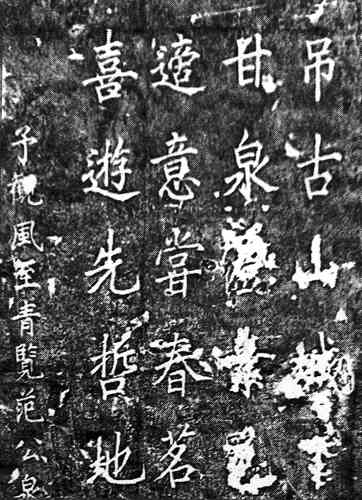 吊古山
甘泉
適意嘗春茗
喜遊先哲地
予觀風至青覽范公泉